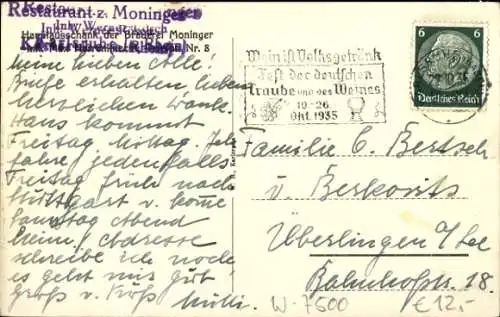 Restaurant z. Moninger
Hauptausschank der Brauerei Moninger
Nr. 8
Meine lieben Alle!
Briefe erhalten, lieben
herzlichen Dank.
Hans kommt
Freitag Mittag. Ich
fahre jedenfalls
Freitag früh nach
Stuttgart u. komme
Samstag Abend
heim. Adresse
schreibe ich noch
es geht mir gut
Gruß u. Kuß Mutti.
Wein ist Volksgetränk
Fest der deutschen
Traube und des Weines
19-26
Okt. 1935
6 6
Deutsches Reich
Familie C. Bertsch
u. Berkovits
Überlingen a/See
Bahnhofstr. 18.
W-7500 €12,-